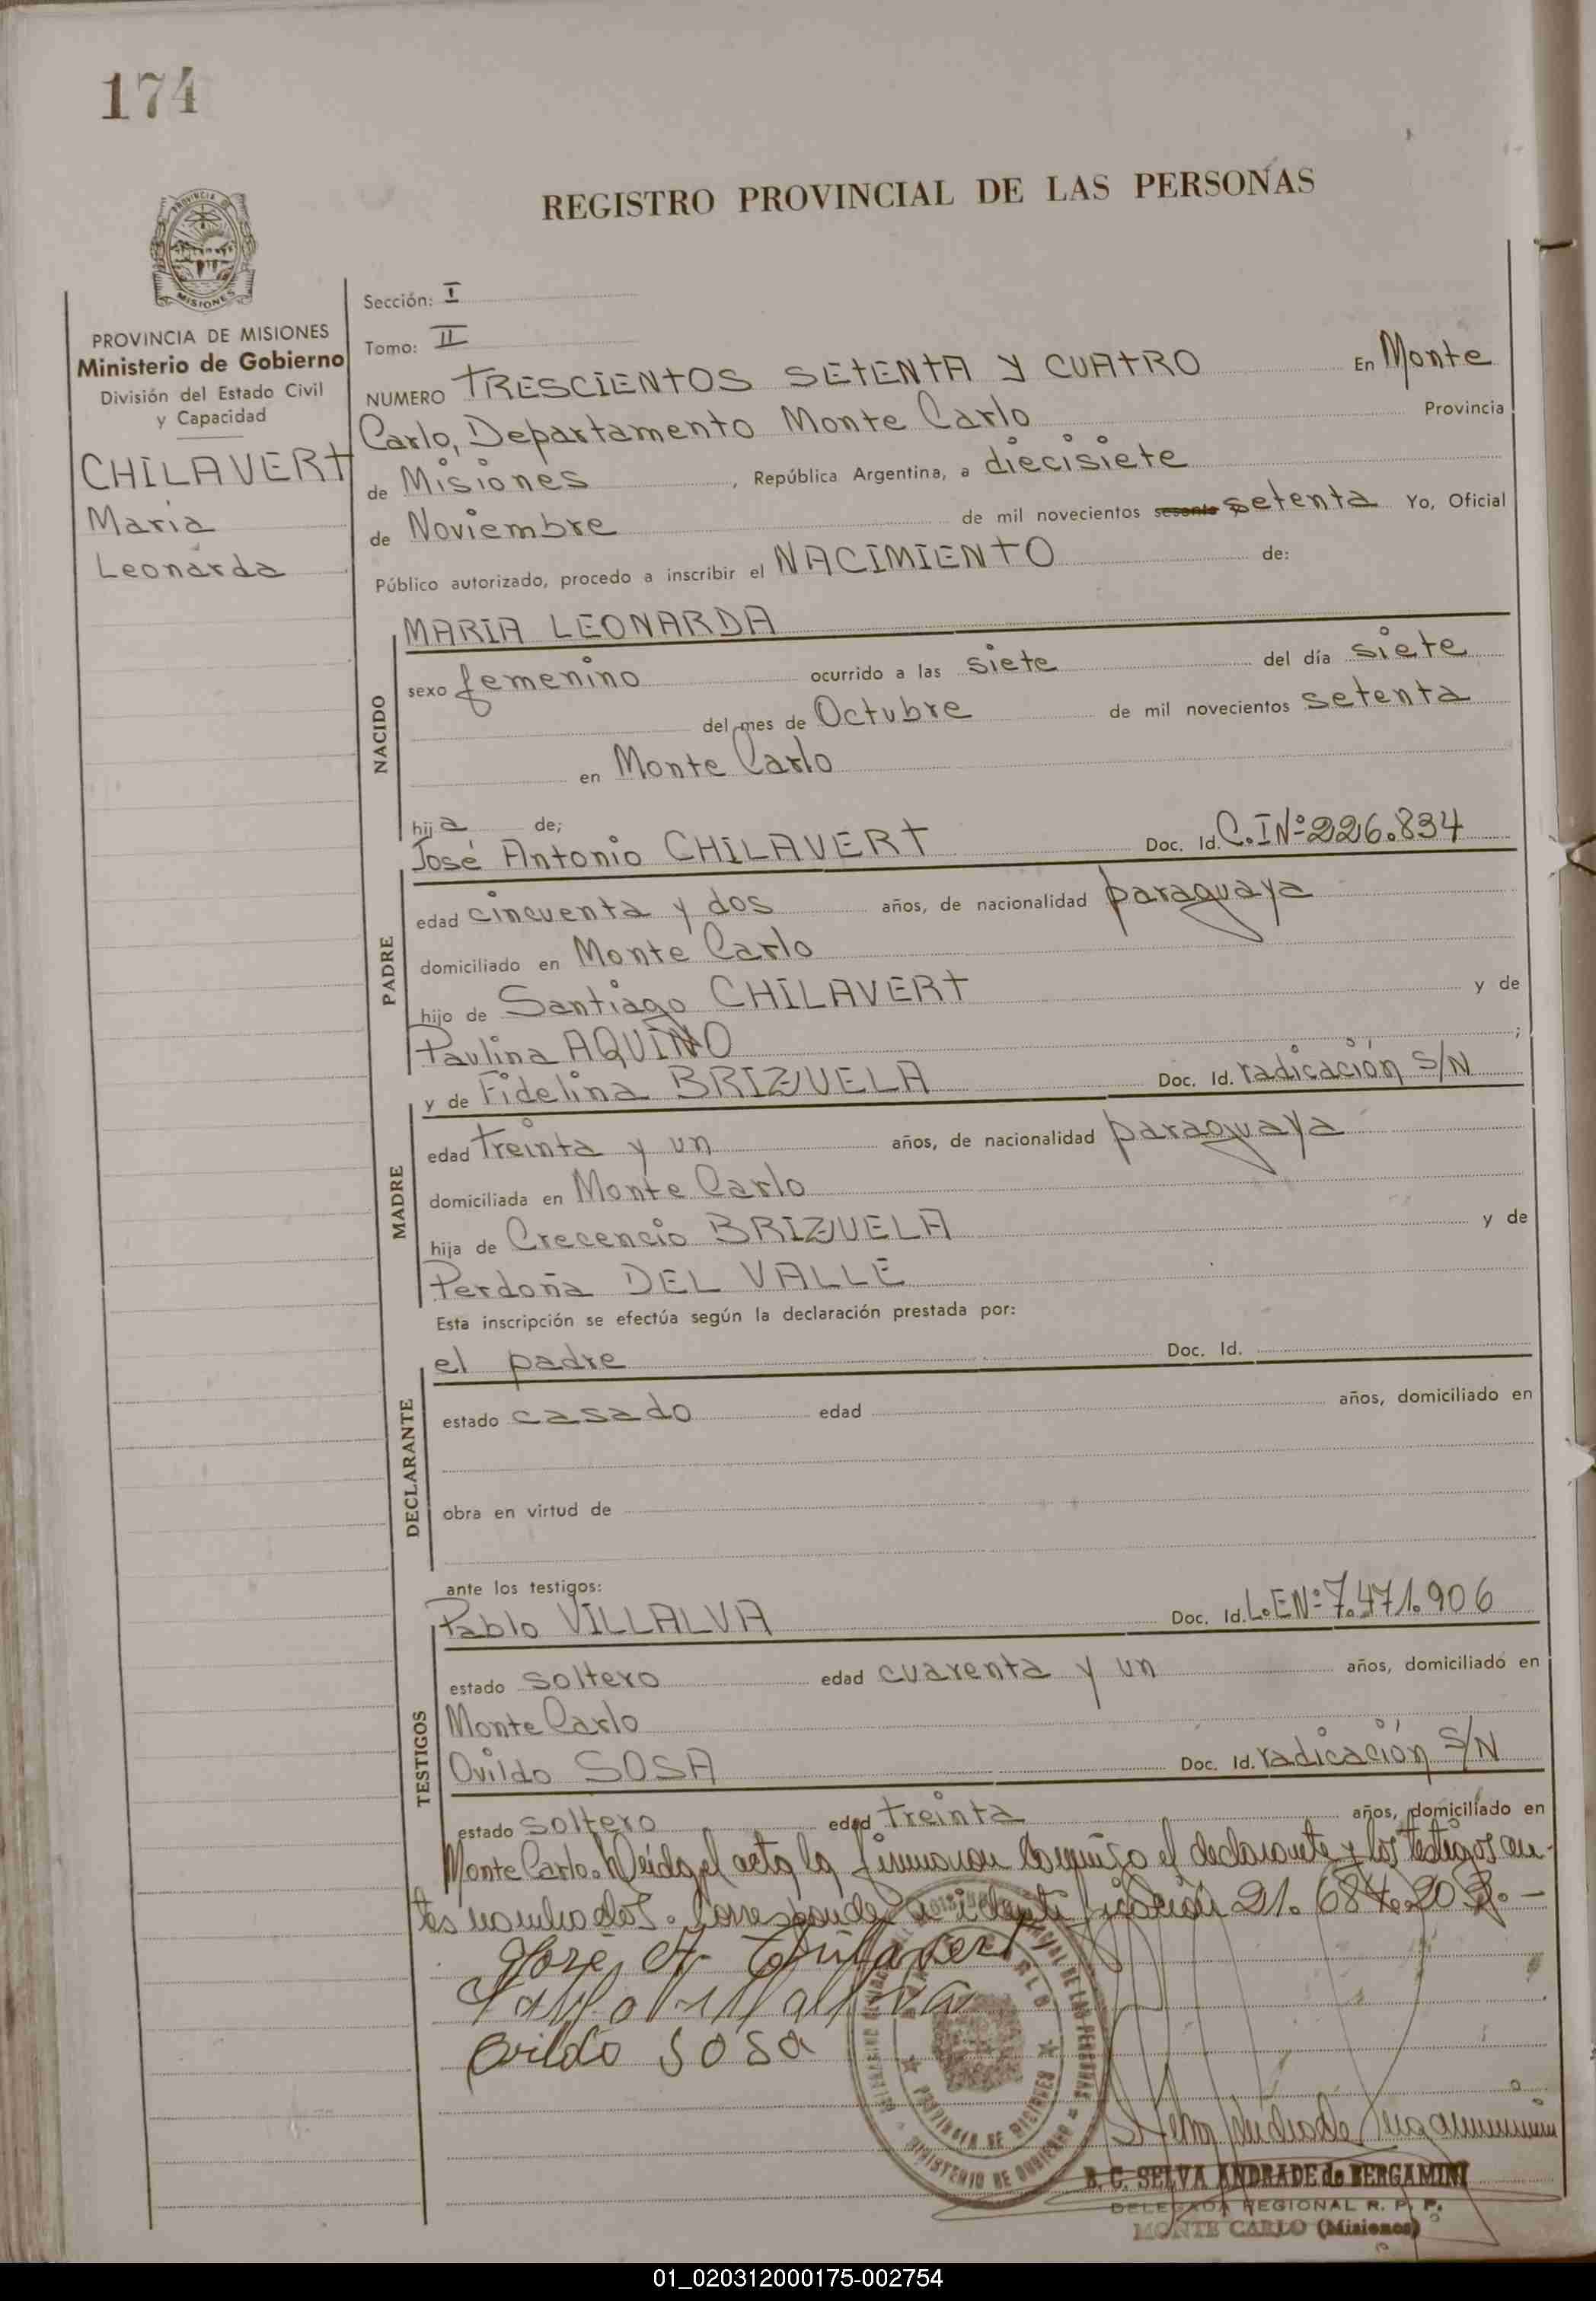 174
REGISTRO PROVINCIAL DE LAS PERSONAS
PROVINCIA DE MISIONES
Ministerio de Gobierno
División del Estado Civil
y Capacidad
CHILAVERT
Maria
Leonarda
Sección: I
Tomo: II
NUMERO TRESCIENTOS SETENTA Y CUATRO En Monte
Carlo, Departamento Monte Carlo Provincia
de Misiones, República Argentina, a diecisiete
de Noviembre de mil novecientos sesenta setenta Yo, Oficial
Público autorizado, procedo a inscribir el NACIMIENTO de:
NACIDO
MARIA LEONARDA
sexo femenino ocurrido a las siete del día siete
del mes de Octubre de mil novecientos setenta
en Monte Carlo
hija de;
PADRE
José Antonio CHILAVERT Doc. Id. C.I Nº 226.834
edad cincuenta y dos años, de nacionalidad paraguaya
domiciliado en Monte Carlo
hijo de Santiago CHILAVERT y de
Paulina AQUINO ;
MADRE
y de Fidelina BRIZUELA Doc. Id. radicación S/N
edad treinta y un años, de nacionalidad paraguaya
domiciliada en Monte Carlo
hija de Crecencio BRIZUELA y de
Perdoña DEL VALLE
Esta inscripción se efectúa según la declaración prestada por:
DECLARANTE
el padre Doc. Id.
estado casado edad años, domiciliado en
obra en virtud de
ante los testigos:
TESTIGOS
Pablo VILLALVA Doc. Id. L.E Nº 7.471.906
estado soltero edad cuarenta y un años, domiciliado en
Monte Carlo
Ovildo SOSA Doc. Id. radicación S/N
estado soltero edad treinta años, domiciliado en
Monte Carlo. Leida el acta la firmaron conmigo el declarante y los testigos an-
tes nombrados. Corresponde a identificación 21.684.20
José A. Chilavert
Pablo Villalva
Ovildo SOSA
PROVINCIA DE MISIONES
MINISTERIO DE GOBIERNO
B. C. SELVA ANDRADE de BERGAMINI
DELEGADA REGIONAL R. P. P.
MONTE CARLO (Misiones)
01_020312000175-002754